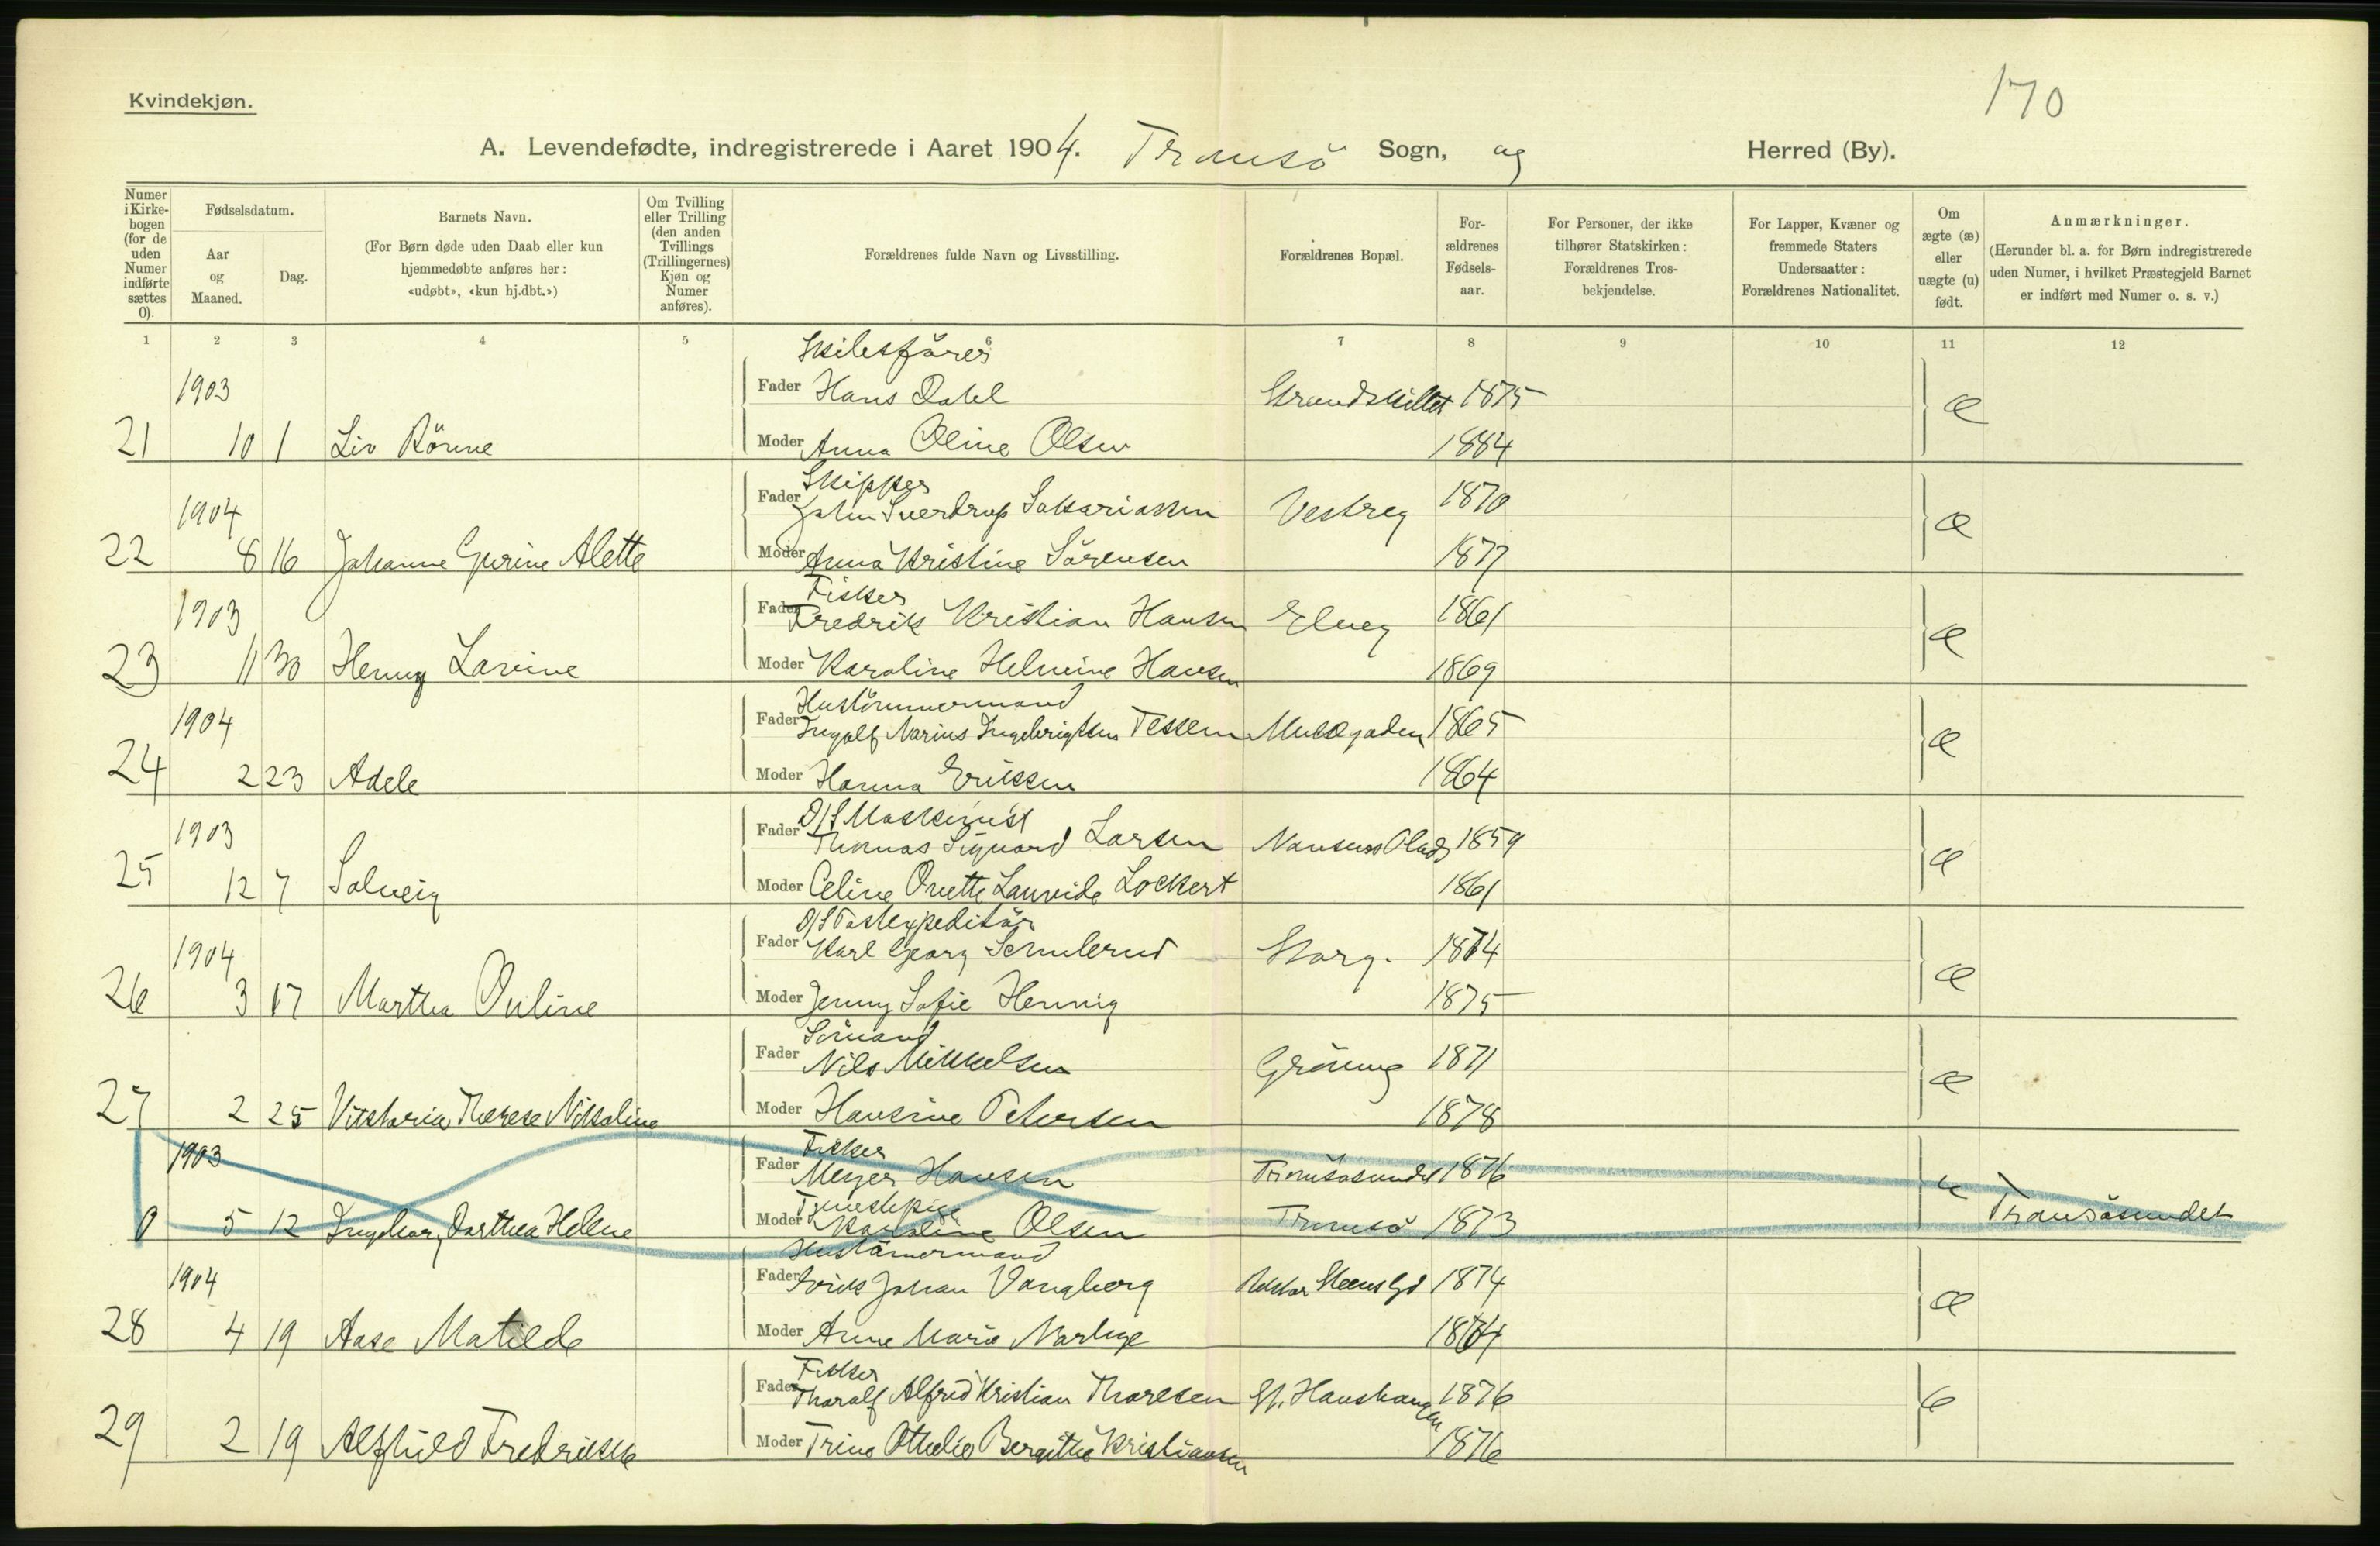 170
Kvindekjøn.
A. Levendefødte, indregistrerede i Aaret 1904. Tromsö Sogn, og Herred (By).
Numer i Kirkebogen (for de uden Numer indførte sættes 0).
Fødselsdatum.
Aar og Maaned.
Dag.
Barnets Navn.
(For Børn døde uden Daab eller kun hjemmedøbte anføres her: «udøbt», «kun hj.dbt.»)
Om Tvilling eller Trilling (den anden Tvillings (Trillingernes) Kjøn og Numer anføres).
Forældrenes fulde Navn og Livsstilling.
Forældrenes Bopæl.
Forældrenes Fødselsaar.
For Personer, der ikke tilhører Statskirken: Forældrenes Trosbekjendelse.
For Lapper, Kvæner og fremmede Staters Undersaatter: Forældrenes Nationalitet.
Om ægte (æ) eller uægte (u) født.
Anmærkninger.
(Herunder bl. a. for Børn indregistrerede uden Numer, i hvilket Præstegjeld Barnet er indført med Numer o. s. v.)
1 2 3 4 5 6 7 8 9 10 11 12
Skibsfører
1903 Fader Hans Dahl Strandskillet 1875 æ
21 10 1 Liv Rönne Moder Anna Oline Olsen 1884
Skipper
1904 Fader Johan Sverdrup Sakariassen Vestreg 1870 æ
22 8 16 Johanne Gurine Alette Moder Anna Kristine Sörensen 1877
Fisker
1903 Fader Fredrik Kristian Hansen Elveg 1861 æ
23 11 30 Henny Lavine Moder Karoline Helmine Hansen 1869
Hustömmermand
1904 Fader Ingolf Marius Ingebrigtsen Tessem Musægaden 1865 æ
24 2 23 Adele Moder Hanna Erikssen 1864
D/S Maskinist
1903 Fader Thomas Siguard Larsen Nansens Plads 1859 æ
25 12 7 Solveig Moder Celine Ovette Lauvide Lockert 1861
D/S Postexpeditör
1904 Fader Karl Georg Schulerud Storg. 1874 æ
26 3 17 Martha Ouline Moder Jenny Sofie Hennig 1875
Sömand
Fader Nils Mikkelsen Grönneg 1871 æ
27 2 25 Viktoria Therese Nikoline Moder Hansine Petersen 1878
Fisker
1903 Fader Meyer Hansen Tromsösundet 1876 u Tromsösundet
Tjenestepige
0 5 12 Ingeborg Dorthea Helene Moder Karoline Olsen Tromsö 1873
Hustömermand
1904 Fader Erik Johan Vangberg Rektor Steens Gd 1874 æ
28 4 19 Aase Matilde Moder Anne Marie 1874
Fisker
Fader Thoralf Alfred Kristian Thoresen St. Hanshaugen 1876 æ
29 2 19 Alfhild Fredrikke Moder Trine Othelie Bergithe Kristiansen 1876